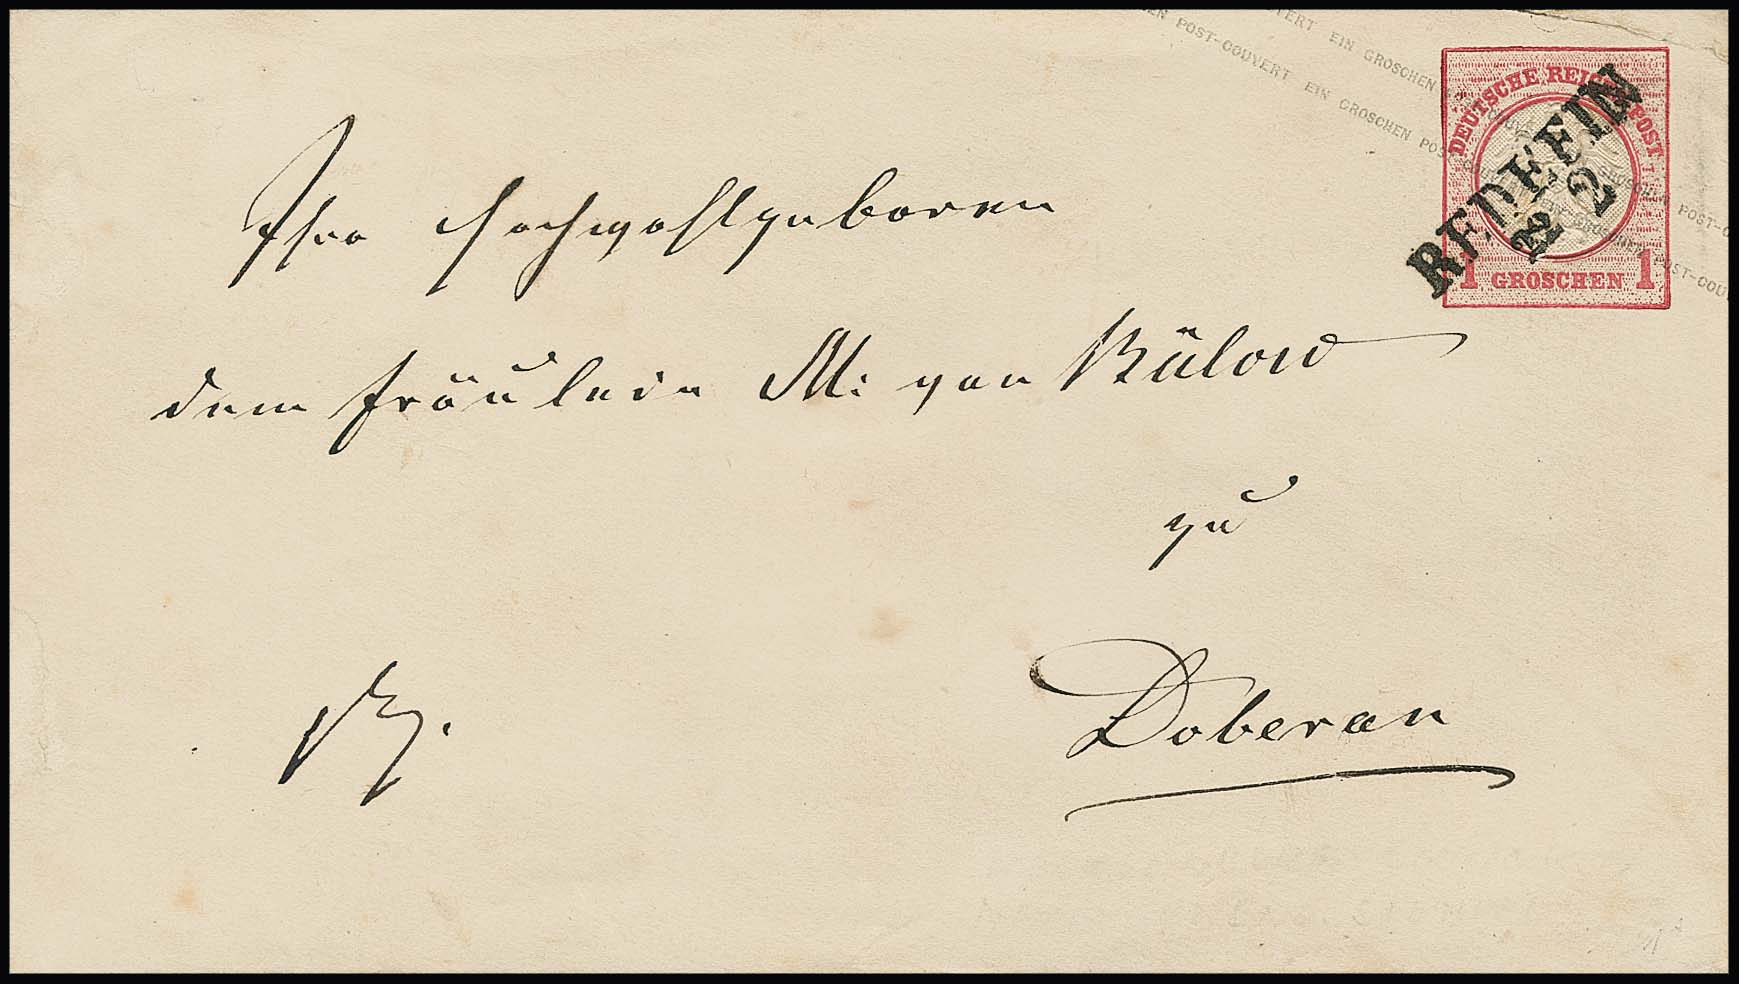 POST-COUVERT EIN GROSCHEN
EN POST-COUVERT EIN GROSCHEN POST-COUVERT EIN GROSCHEN POST-COUV
DEUTSCHE REICHS-POST
1 GROSCHEN 1
REDEFIN
22 2
Ihro Hochwohlgeboren
dem Fräulein M: von Bülow
zu
Doberan